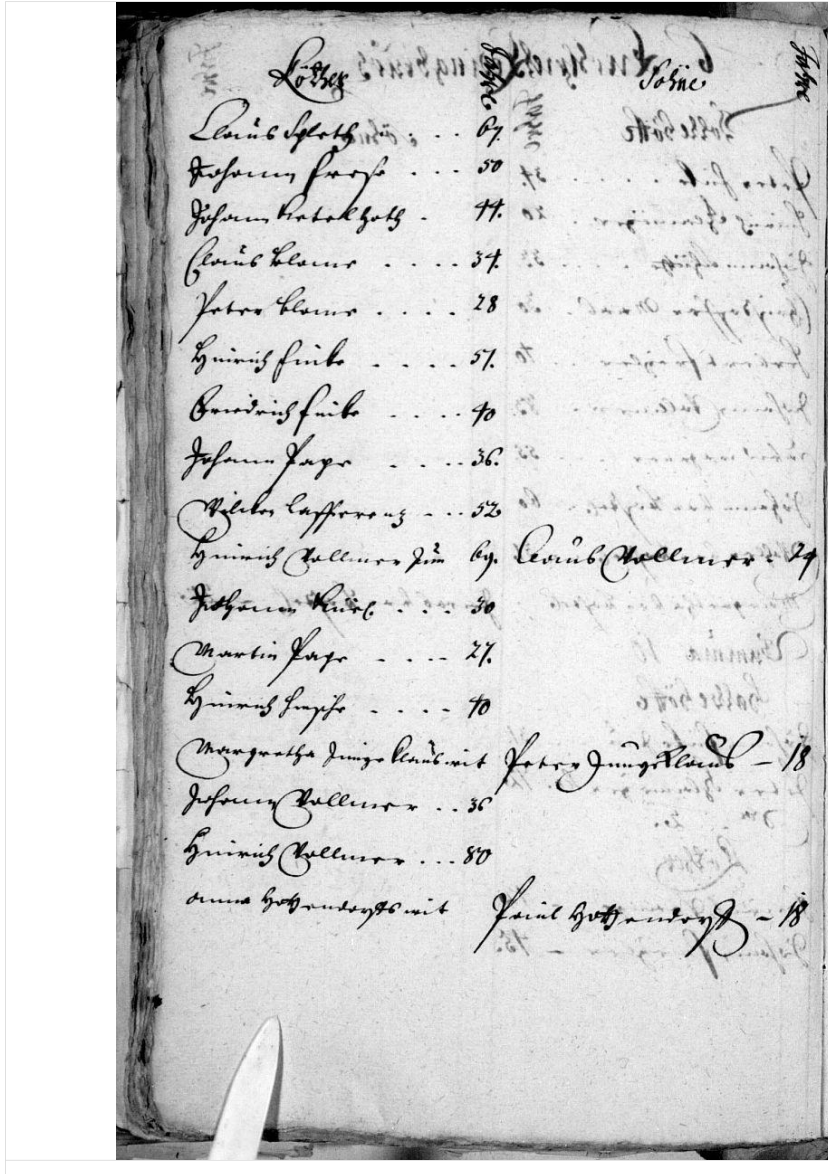 Köther Jahre Söhne Jahre
Claus Spleth . . . 67.
Johann Frese . . . 50
Johann Ketelhoth . 44.
Claus Blome . . . . 34.
Peter Blome . . . . 28
Hinrich Finke . . . . 57.
Friedrich Finke . . . . 40
Johann Pape . . . . 36.
Wilcken Lafferenz - . . 52
Hinrich Vollmer Jun 69. Claus Vollmer - 24
Johann . . . 30
Martin Pape - . . . 27.
Hinrich . . . . 40
Margretha Junge Klaus wit Peter Junge Klaus - 18
Johann Vollmer . . 36
Hinrich Vollmer . . . 80
Anna Hottendorffs wit Paul Hottendorff - 18